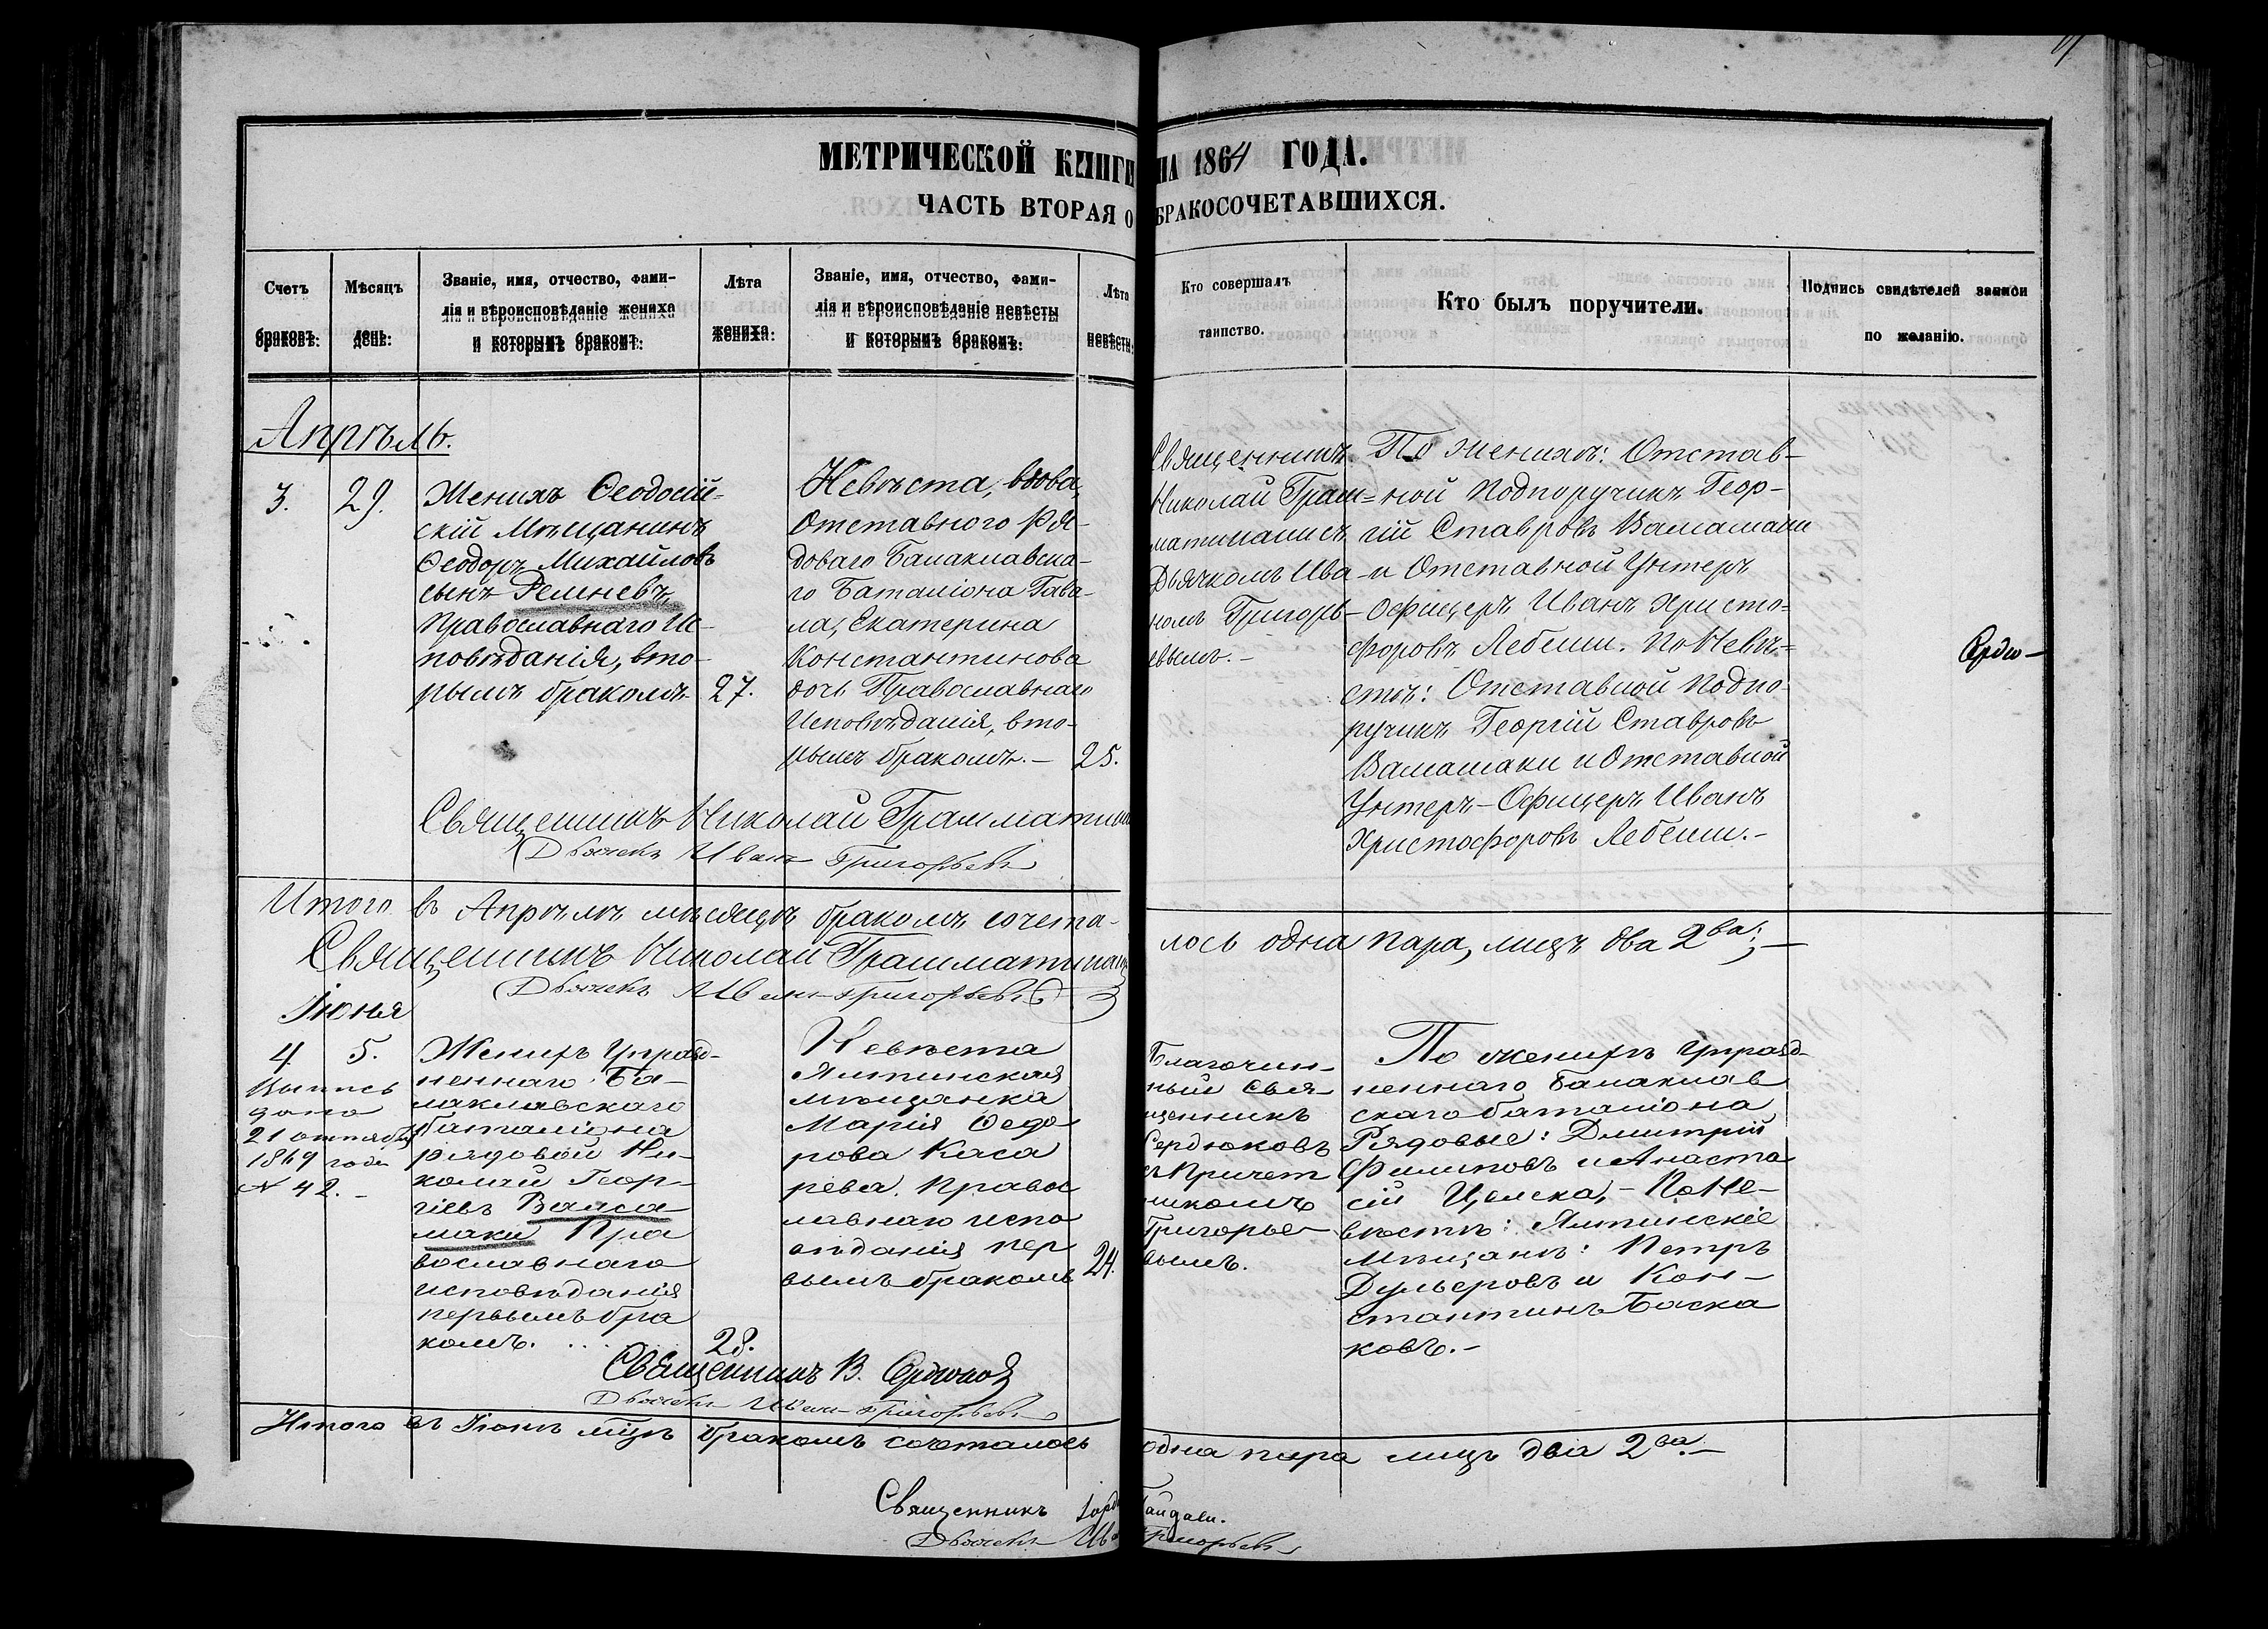 МЕТРИЧЕСКОЙ КНИГИ НА 1864 ГОДА.
ЧАСТЬ ВТОРАЯ О БРАКОСОЧЕТАВШИХСЯ.
Счетъ
браковъ:
Мѣсяцъ
день:
Званіе, имя, отчество, фами-
лія и вѣроисповѣданіе жениха
и которымъ бракомъ:
Лѣта
жениха:
Званіе, имя, отчество, фами-
лія и вѣроисповѣданіе невѣсты
и которымъ бракомъ:
Лѣта
невѣсты:
Кто совершалъ
таинство.
Кто былъ поручители.
Подпись свидѣтелей записи
по желанію.
Апрѣль.
3.
29.
Женихъ Ѳеодосій-
скій Мѣщанинъ
Ѳеодоръ Михайловъ
сынъ
Православнаго Ис-
повѣданія, вто-
рымъ бракомъ
27.
Невѣста, вдова,
Отставного Ря-
доваго Балаклавска-
го Баталіона Гава-
ла, Екатерина
Константинова
дочь Православнаго
Исповѣданія, вто-
рымъ бракомъ.-
25.
Священникъ
Николай Грам=
матикаписъ
Дьячкомъ Ива-
номъ Григорь-
евымъ.-
По женихѣ: Отстав-
ной Подпоручикъ Геор-
гій Ставровъ
и Отставной Унтеръ
Офицеръ Иванъ Христо=
форовъ Лебеши. По Невѣ=
стѣ: Отставной Подпо-
ручикъ Георгій Ставровъ
и Отставной
Унтеръ-Офицеръ Иванъ
Христофоровъ Лебеши.-
Сердю-
Священникъ Николай
Дьячекъ Иванъ Григорьевъ
Итого въ Апрѣлѣ мѣсяцѣ бракомъ сочета-
лось одна пара, лицъ два 2ва;-
Священникъ Николай
Дьячекъ Иванъ Григорьевъ
Іюня
4.
5.
Выпись
дана
21 октября
1869 года
№ 42.-
Женихъ Упразд-
неннаго Ба-
лаклавскаго
баталіона
рядовой Ни-
колай Геор-
гіевъ Валса-
маки Пра
вославнаго
исповѣданія
первымъ бра
комъ. . . . .
28.
Невѣста
Ялтинская
мѣщанка
Марія Ѳедо-
рова Каса
рева. Правос
лавнаго испо
вѣданія пер
вымъ бракомъ
24.
Благочин-
ный Свя-
щенникъ
Сердюковъ
съ Причет
никомъ
Григорье-
вымъ.
По женихѣ Упразд-
неннаго Балаклав
скаго баталіона
Рядовые: Дмитрій
Филиповъ и Анаста
сій Целека,- По Не-
вѣстѣ: Ялтинскіе
Мѣщане: Петръ
Дульеровъ и Кон-
стантинъ Баска
ковъ.-
Священникъ В. Сердюковъ
Дьячекъ Иванъ Григорьевъ
Итого въ Іюнѣ мѣцѣ бракомъ сочеталось
одна пара лицъ два 2ва.-
Священникъ
Дьячекъ Григорьевъ